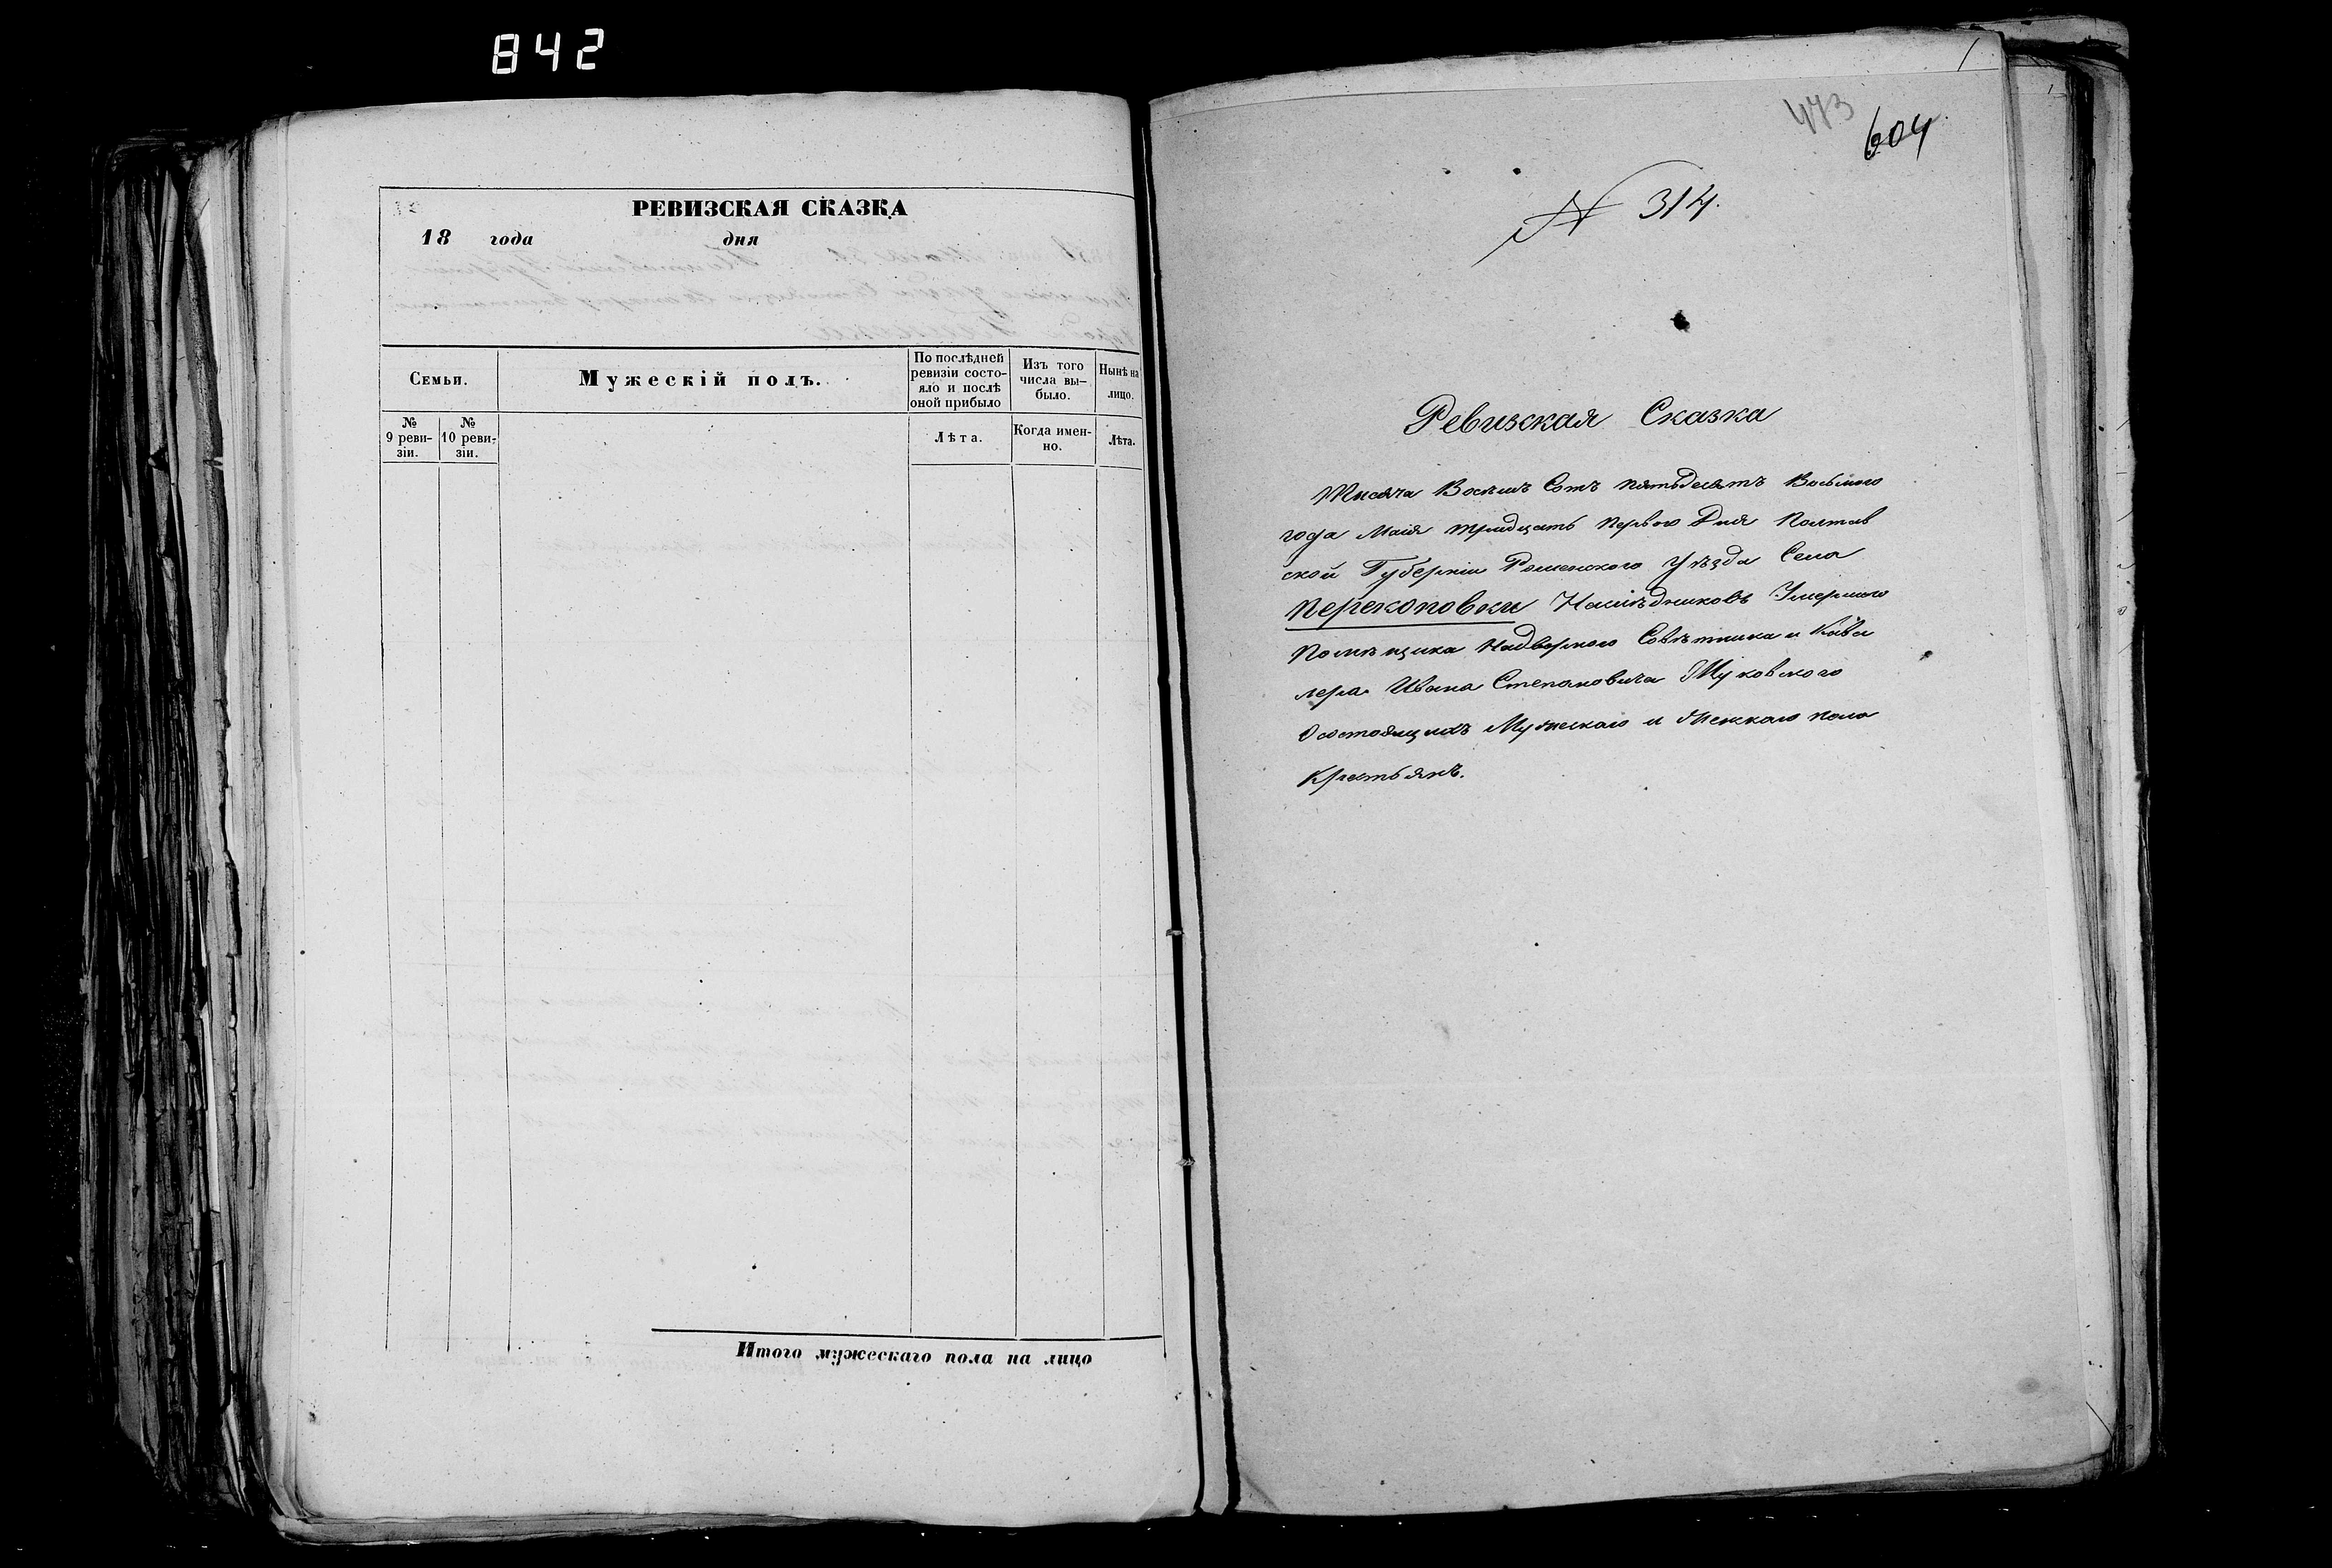 842
РЕВИЗСКАЯ СКАЗКА
18 года дня
Семьи.
Мужескій полъ.
По послѣдней
ревизіи состо-
яло и послѣ
оной прибыло
Изъ того
числа вы-
было.
Нынѣ на
лицо.
№
9 реви-
зіи.
№
10 реви-
зіи.
Лѣта.
Когда имен-
но.
Лѣта.
Итого мужескаго пола на лицо
1
473
604
№ 314.
Ревизская Сказка
Тысяча Восемъ Сотъ пятьдесятъ Восьмого
года Маія тридцать Первого Дня Полтав
ской Губерніи Роменского Уѣзда Села
Перекоповки Наслѣдниковъ Умершого
Помѣщика Надворного Совѣтника и Кава
лера Ивана Степановича
состоящихъ Мужескаго и Женскаго пола
Крестьянъ.